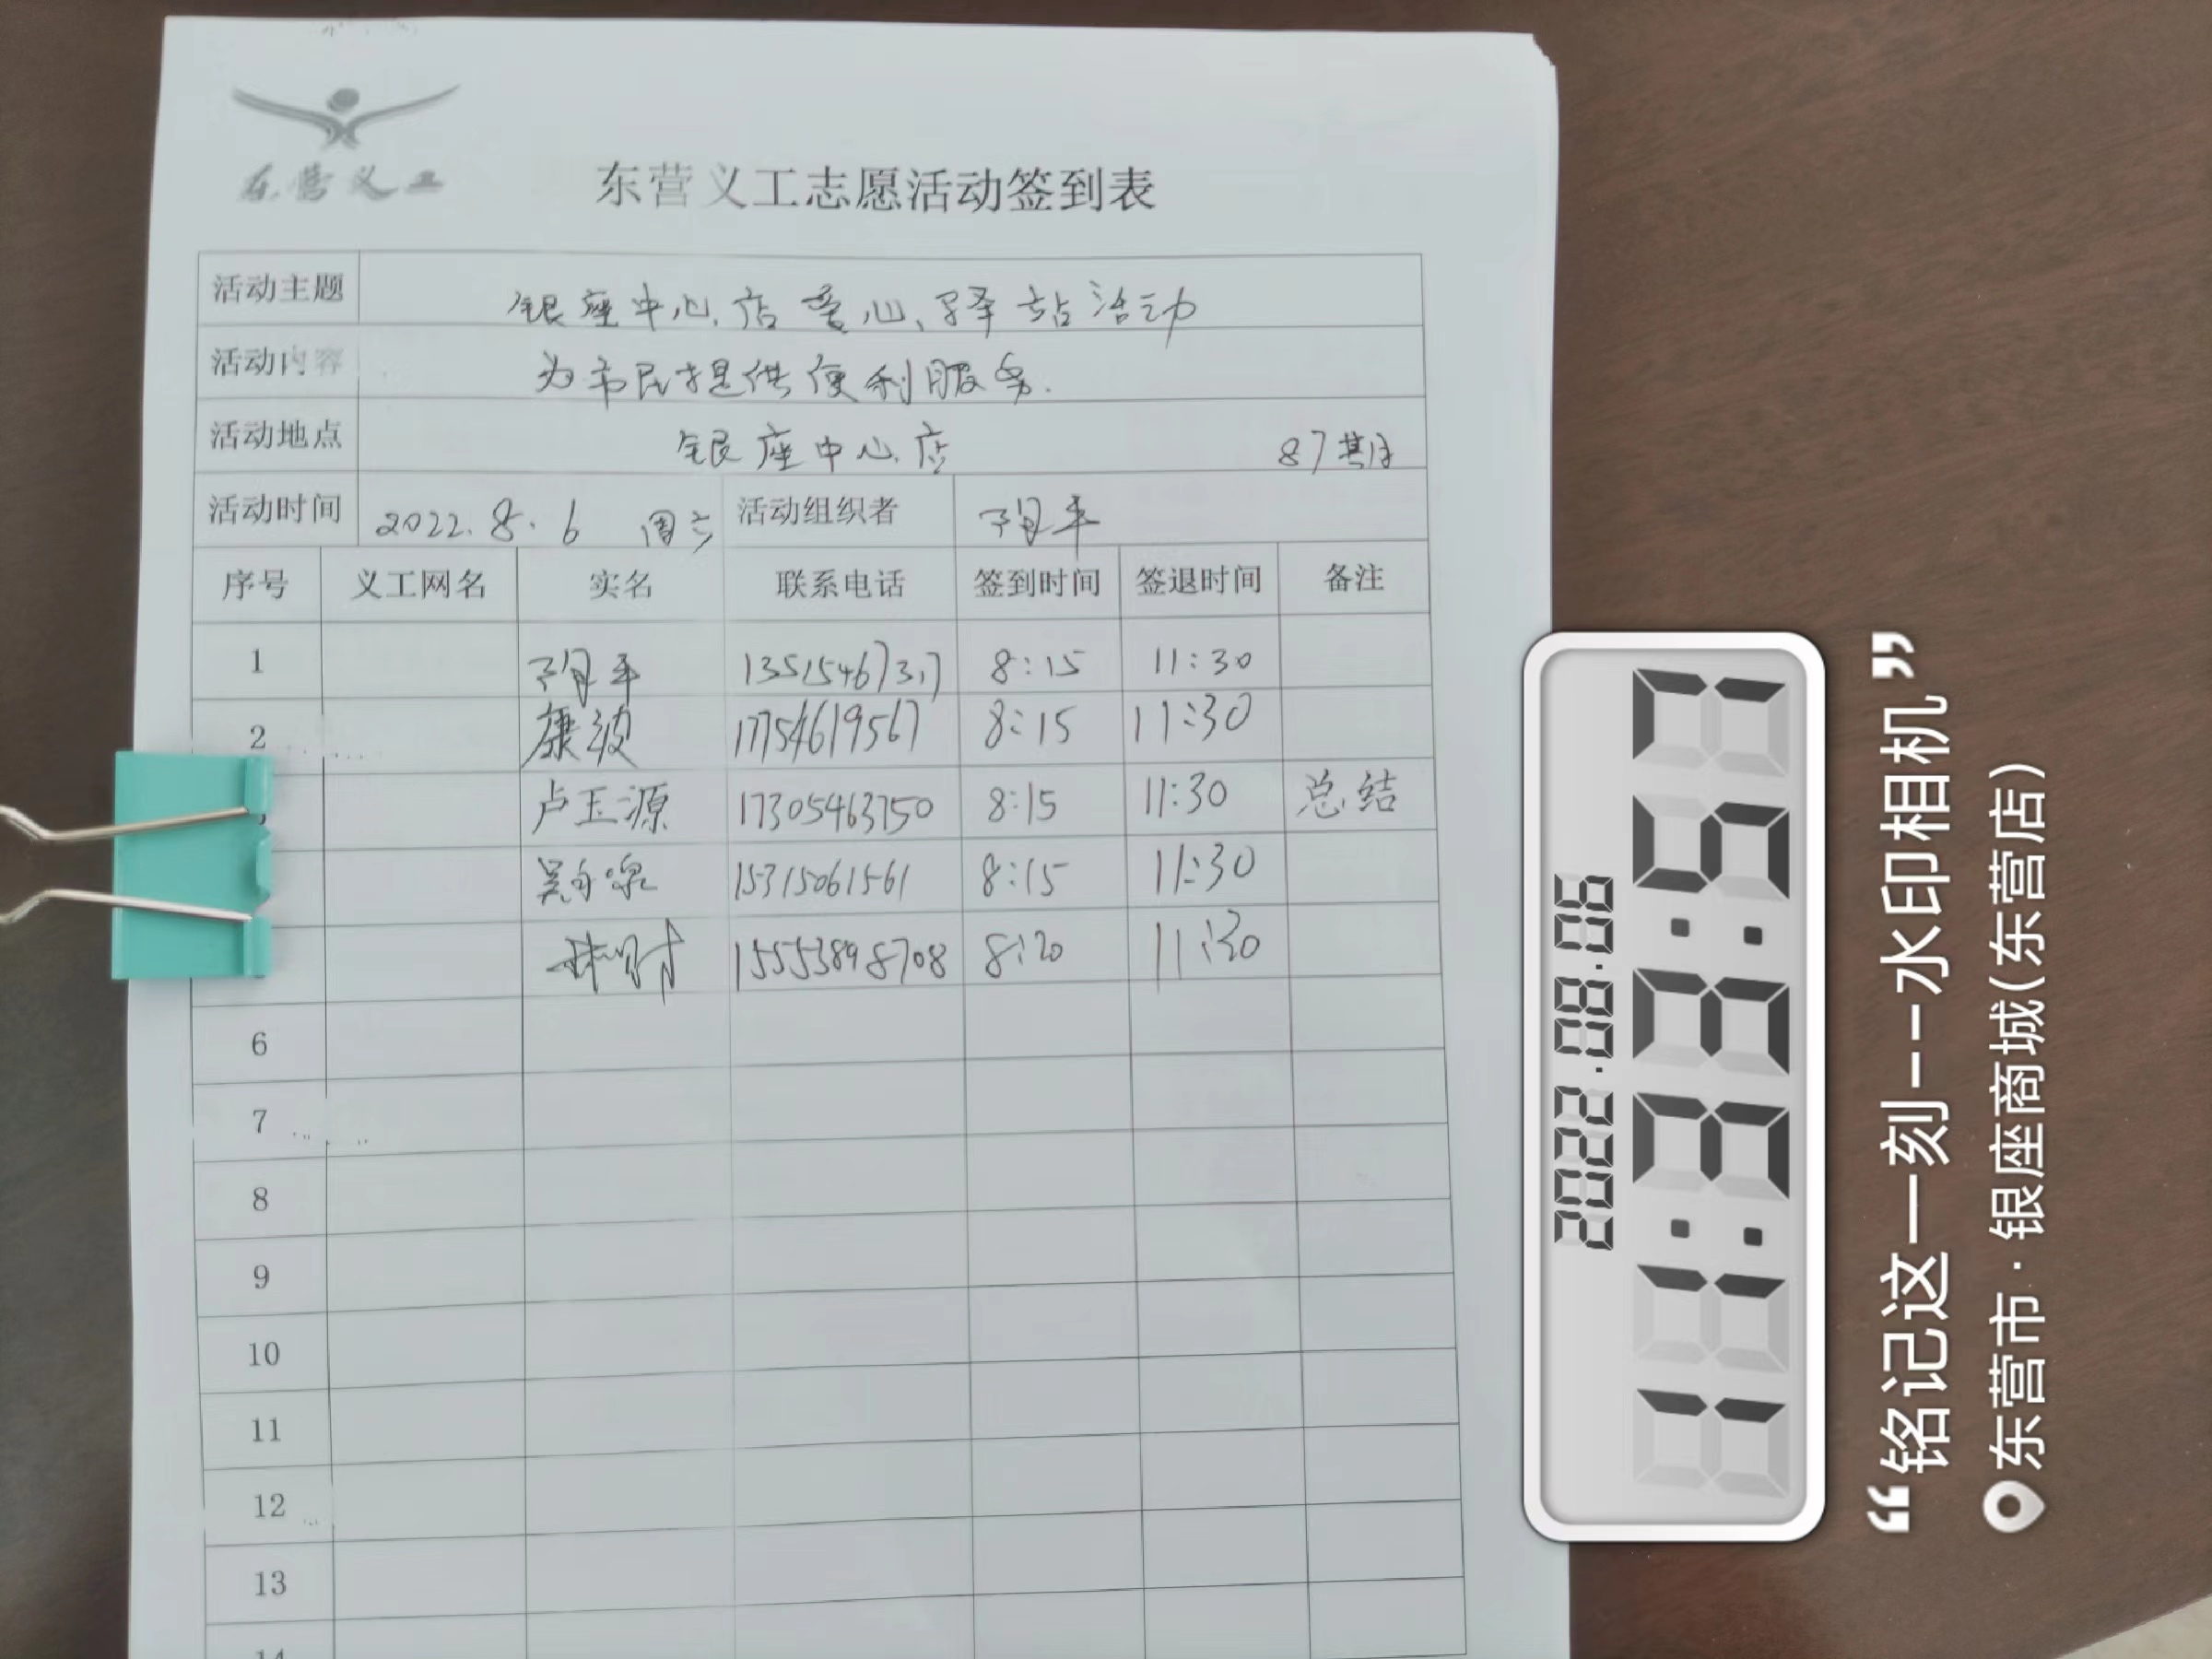 东营义工
东营义工志愿活动签到表
活动主题 银座中心店爱心驿站活动
活动内容 为市民提供便利服务.
活动地点 银座中心店 87期
活动时间 2022.8.6 周六 活动组织者
序号 义工网名 实名 联系电话 签到时间 签退时间 备注
1 8:15 11:30
2 康波 17754619567 8:15 11:30
卢玉源 17305463750 8:15 11:30 总结
15315061561 8:15 11:30
15553898708 8:20 11:30
6
7
8
9
10
11
12
13
14
2022.08.06
11:88:57
“铭记这一刻--水印相机”
东营市·银座商城(东营店)